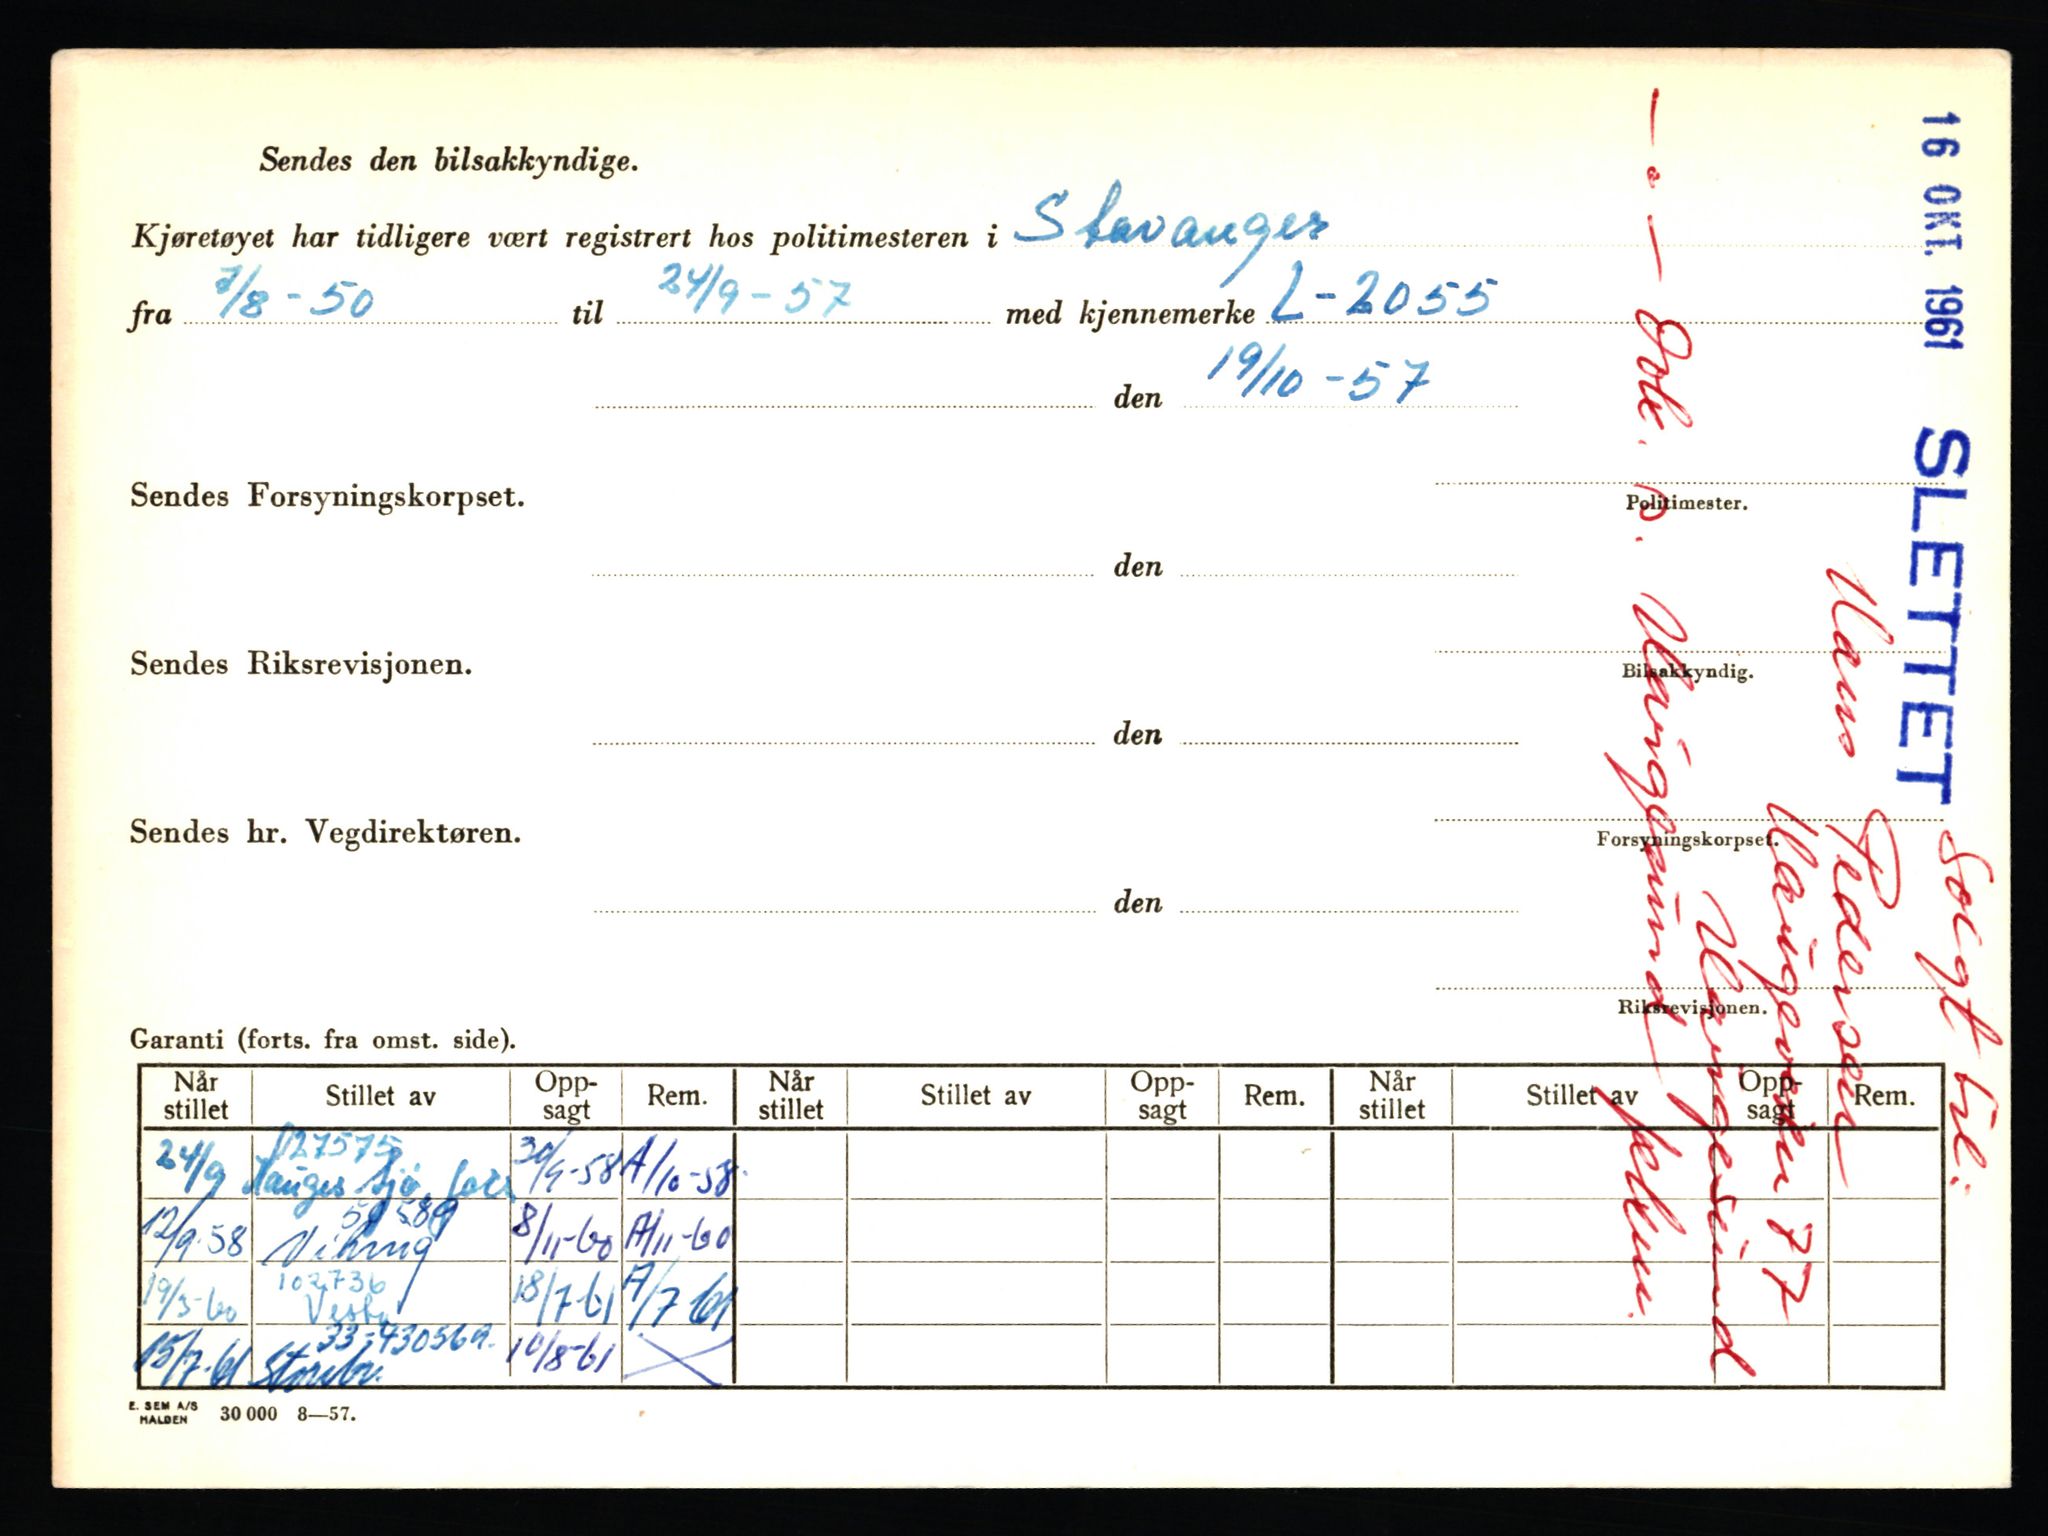 Sendes den bilsakkyndige.
Kjøretøyet har tidligere vært registrert hos politimesteren i Stavanger
fra 7/8-50 til 24/9-57 med kjennemerke L-2055
den 19/10-57
Politimester.
Sendes Forsyningskorpset.
den
Bilsakkyndig.
Sendes Riksrevisjonen.
den
Forsyningskorpset.
Sendes hr. Vegdirektøren.
den
Riksrevisjonen.
Garanti (forts. fra omst. side).
Når stillet Stillet av Opp-sagt Rem. Når stillet Stillet av Opp-sagt Rem. Når stillet Stillet av Opp-sagt Rem.
127575
24/9 Hauges Sjø 30/9-58 A/10-58
12/9-58 Viking 8/11-60 A/11-60
102736
19/3-60 Vesta 18/7-61 A/7-61
33-430569
15/7-61 Storebr. 10/8-61
E. SEM A/S
HALDEN 30 000 8—57.
16 OKT. 1961 SLETTET
Solgt til:
Hans Pedersen
Haugevein 77
Haugesund
p. Haugesund